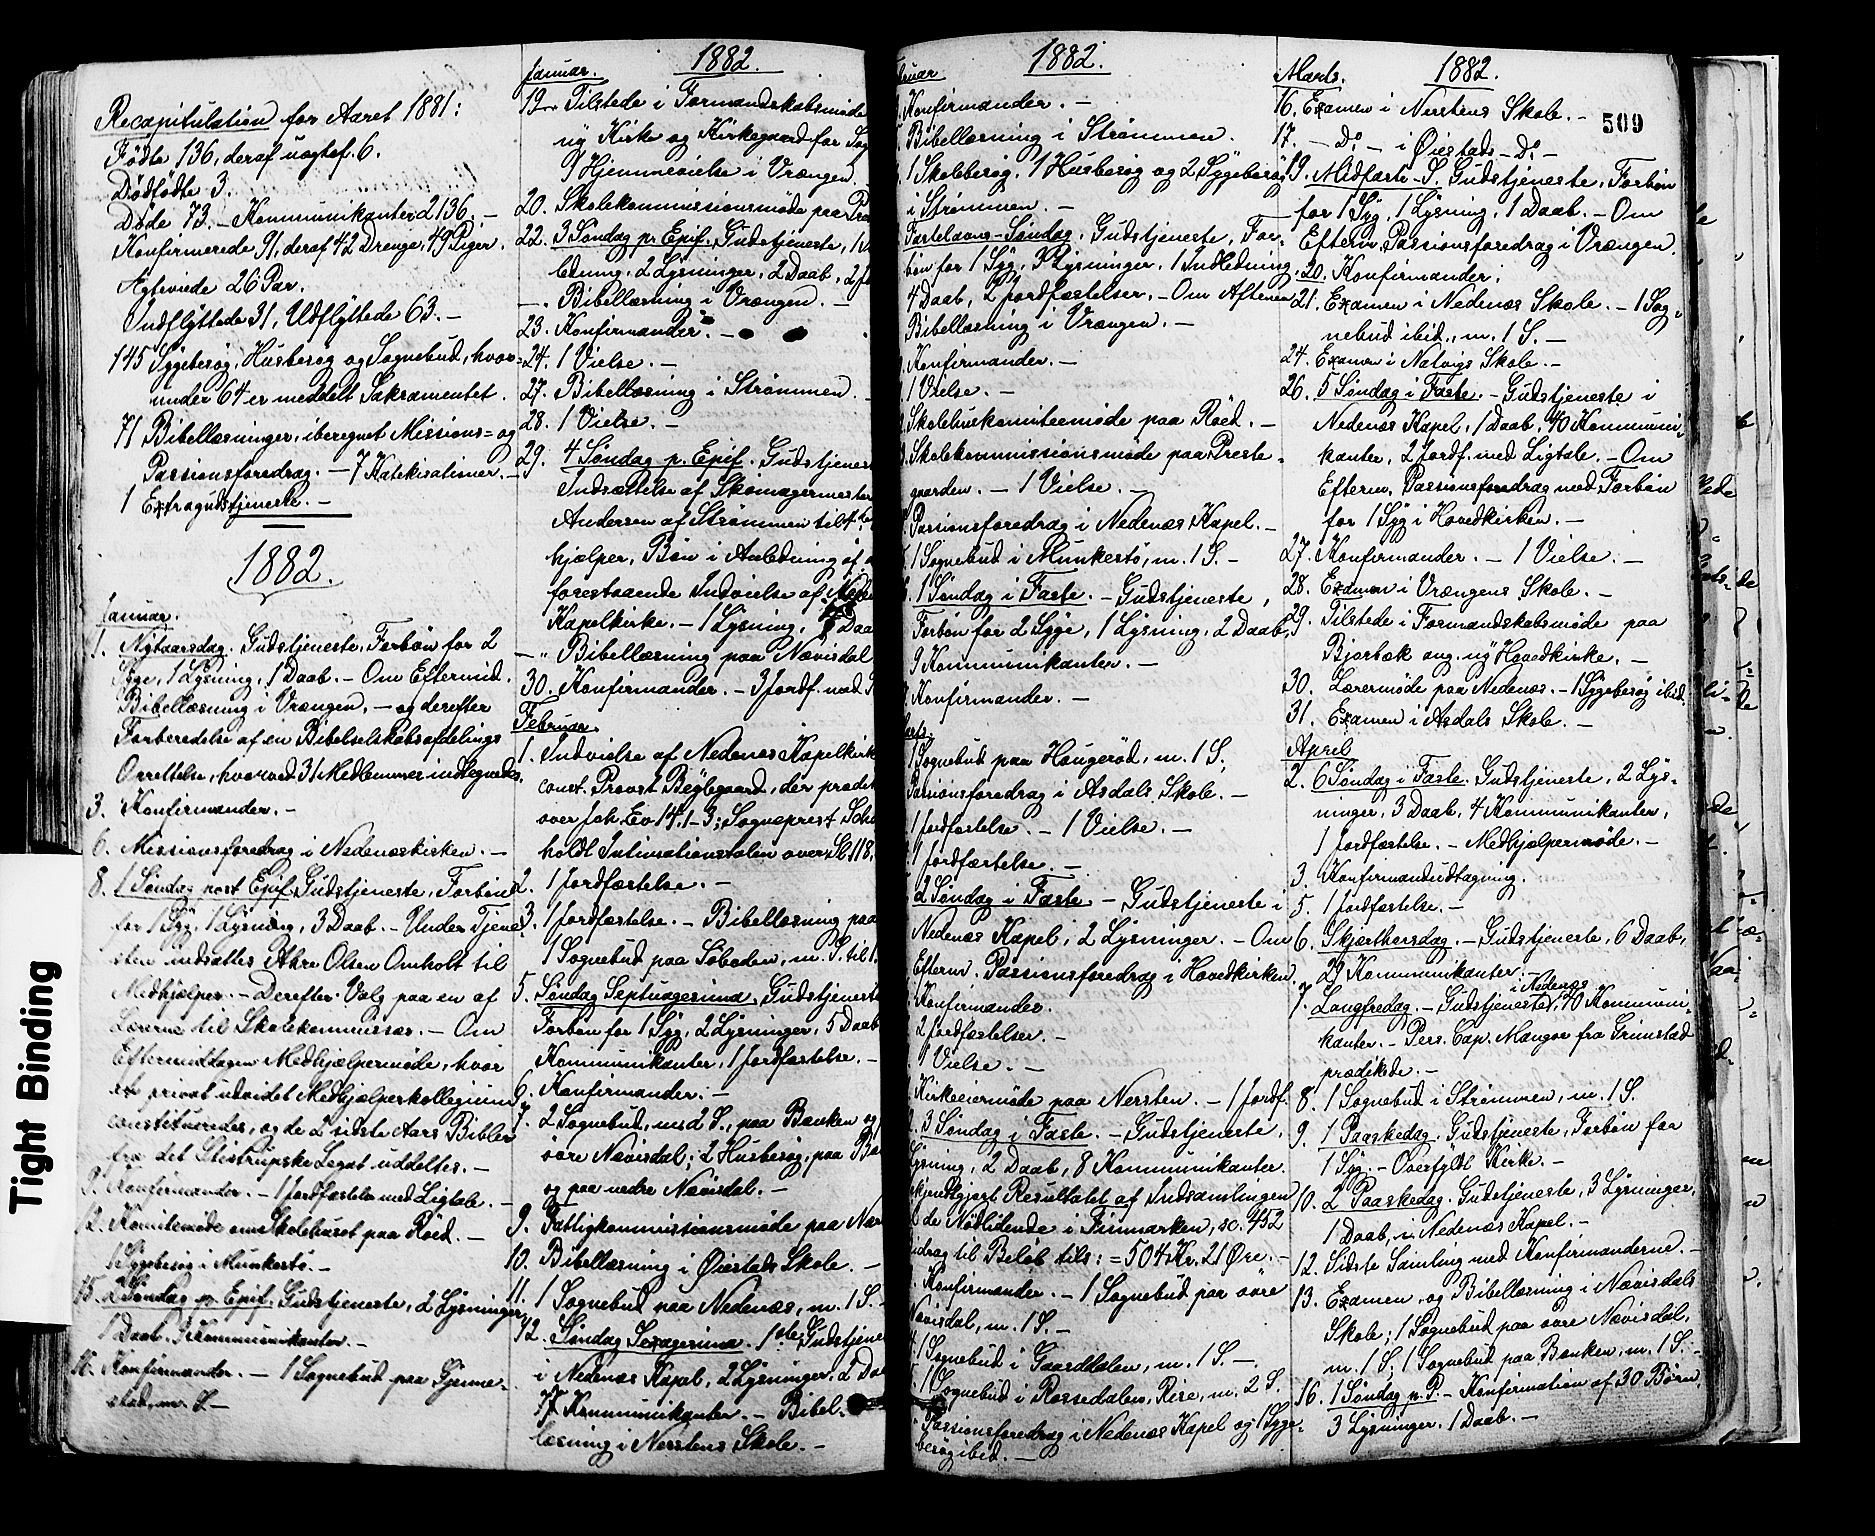 Recapitulation for Aaret 1881:
Fødte 136, deraf uægtef. 6.
Dødfødte 3.
Døde 73. – Kommunikanter 2136. –
Konfirmerede 91, deraf 42 Drenge, 49 Piger.
Ægteviede 26 Par.
Indflyttede 31, Udflyttede 63. –
145 Sygebesøg, Husbesøg og Sognebud, hvor=
under 64 er meddelt Sakramentet.
71 Bibellæsninger, iberegnet Missions= og
Passionsforedrag. – 7 Katekisationer. –
1 Extragudstjeneste. –
1882.
Januar.
1. Nytaarsdag. Gudstjeneste, Forbøn for 2
Syge, 1 Lysning, 1 Daab. – Om Eftermid.
Bibellæsning i Vrængen, – og derefter
Forberedelse af en Bibelselskabsafdelings
Oprettelse, hvorved 31 Medlemmer indtegnedes.
3. Konfirmander. –
6. Missionsforedrag i Nedenæskirken. –
8. 1 Søndag post Epif. Gudstjeneste, Forbøn
for 1 Syg, 1 Lysning, 3 Daab. – Under Tjene=
sten indsattes Ahre Olsen Omholt til
Medhjælper. – Derefter Valg paa en af
Lærerne til Skolekommissær. – Om
Eftermiddagen Medhjælpermøde, hvor
et privat udvidet Medhjælperkollegium
constitueredes, og de 2 sidste Aars Bibler
fra det Stistrupske Legat uddeltes. –
9. Konfirmander. – 1 Jordfæstelse med Ligtale. –
12. Komitemøde om Skolehuset paa Røed. –
1 Sygebesøg i Munkestø. –
15. 2 Søndag p. Epif. Gudstjeneste, 2 Lysninger,
1 Daab, Kommunikanter. –
16. Konfirmander. – 1 Sognebud paa Gjenne=
stad, m. S. –
Januar. 1882.
19. Tilstede i Formandskabsmøde
ny Kirke og Kirkegaard for
Hjemmevielse i Vrængen
20. Skolekommissionsmøde paa
22. 3 Søndag p. Epif. Gudstjeneste, 1
ledning, 2 Lysninger, 2 Daab, 2
–. Bibellæsning i Vrængen. –
23. Konfirmander. –
24. 1 Vielse. –
27. Bibellæsning i Strømmen.
28. 1 Vielse. –
29. 4 Søndag p. Epif. Gudstjeneste
Indsættelse af Skomagermester
Andersen af Strømmen til
hjælper, Bøn i Anledning af
forestaaende Indvielse af
Kapelkirke. – 1 Lysning, Daa
– „ Bibellæsning paa Nævisdal
30. Konfirmander. – 3 Jordf. med
Februar.
1. Indvielse af Nedenæs Kapelkirk
const. Provst Bøylegaard, der prædik
over Joh. Ev. 14. 1–3; Sogneprest
holdt Intimationstalen over Sl. 118.
2. 1 Jordfæstelse. –
3. 1 Jordfæstelse. – Bibellæsning paa
1 Sognebud paa Løboden, m. S. til 1.
5. Søndag Septuagesima. Gudstjeneste
Forbøn for 1 Syg, 2 Lysninger, 5 Daab
Kommunikanter, 1 Jordfæstelse. –
6. Konfirmander. –
7. 2 Sognebud, med S., paa Banken og
øvre Nævisdal; 2 Husbesøg, paa
og paa nedre Nævisdal. –
9. Fattigkommissionsmøde paa
10. Bibellæsning i Øiestads Skole. –
11. 1 Sognebud paa Nedenæs, m. 1 S. –
12. Søndag Sexagesima. 1ste Gudstjene
i Nedenæs Kapel, 2 Lysninger, 2
17 Kommunikanter. – Bibel=
læsning i Nerstens Skole. –
1882.
Konfirmander. –
Bibellæsning i Strømmen.
1 Skolebesøg, 1 Husbesøg og 2 Sygebesøg
i Strømmen. –
Fastelavns-Søndag. Gudstjeneste, For=
bøn for 1 Syg, Lysninger, 1 Indledning,
4 Daab, 2 Jordfæstelser. – Om Aftenen
Bibellæsning i Vrængen. –
Konfirmander. –
1 Vielse. –
Skolehuskomiteemøde paa Røed. –
Skolekommissionsmøde paa Preste=
gaarden. – 1 Vielse. –
Passionsforedrag i Nedenæs Kapel. –
1 Sognebud i Munkestø, m. 1 S. –
1 Søndag i Faste. – Gudstjeneste,
Forbøn for 2 Syge, 1 Lysning, 2 Daab,
9 Kommunikanter. –
Konfirmander. –
1 Sognebud paa Haugerød, m. 1 S.;
Passionsforedrag i Asdals Skole. –
1 Jordfæstelse. – 1 Vielse. –
1 Jordfæstelse. –
2 Søndag i Faste – Gudstjeneste i
Nedenæs Kapel, 2 Lysninger. – Om
Efterm. Passionsforedrag i Hovedkirken.
Konfirmander.
2 Jordfæstelser. –
1 Vielse. –
Kirkeeiermøde paa Nersten. – 1 Jordf.
3 Søndag i Faste. – Gudstjeneste,
Lysning, 2 Daab, 8 Kommunikanter.
bekjendtgjort Resultatet af Indsamlingen
de Nødlidende i Finmarken, sc. 452
Bidrag til Beløb tils: = 504 Kr. 21 Øre. –
Konfirmander. – 1 Sognebud paa øvre
Nævisdal, m. 1 S. –
1 Sognebud i Gaarddalen, m. 1 S. –
1 Sognebud i Rossedalen, Rise, m. 2 S.
Passionsforedrag i Nedenæs Kapel og 1 Syge=
besøg ibid. –
Marts. 1882.
509
16. Examen i Nerstens Skole. –
17. – Do – i Øiestads – Do –
19. Midfaste-S. Gudstjeneste, Forbøn
for 1 Syg, 1 Lysning, 1 Daab. – Om
Efterm. Passionsforedrag i Vrængen.
20. Konfirmander.
21. Examen i Nedenæs Skole. – 1 Sog=
nebud ibid., m. 1 S. –
24. Examen i Natvigs Skole. –
26. 5 Søndag i Faste. – Gudstjeneste i
Nedenæs Kapel, 1 Daab, 40 Kommuni=
kanter, 2 Jordf. med Ligtale. – Om
Efterm. Passionsforedrag med Forbøn
for 1 Syg i Hovedkirken. –
27. Konfirmander. – 1 Vielse. –
28. Examen i Vrængens Skole. –
29. Tilstede i Formandskabsmøde paa
Bjorbæk ang. ny Hovedkirke. –
30. Lærermøde paa Nedenæs. – 1 Sygebesøg ibid.
31. Examen i Asdals Skole. –
April
2. 6 Søndag i Faste. Gudstjeneste, 2 Lys=
ninger, 3 Daab, 4 Kommunikanter,
1 Jordfæstelse. – Medhjælpermøde. –
3. Konfirmandudtagning.
5. 1 Jordfæstelse. –
6. Skjærthorsdag. – Gudstjeneste, 6 Daab,
29 Kommunikanter. –
7. Langfredag. – Gudstjeneste i Nedenæs, 70 Kommuni=
kanter. – Pers. Cap. Mangor fra Grimstad
prædikede. –
8. 1 Sognebud i Strømmen, m. 1 S.
9. 1 Paaskedag. Gudstjeneste, Forbøn for
1 Syg. – Overfyldt Kirke. –
10. 2 Paaskedag. Gudstjeneste, 3 Lysninger,
1 Daab, i Nedenæs Kapel. –
12. Sidste Samling med Konfirmanderne. –
13. Examen og Bibellæsning i Nævisdals
Skole; 1 Sognebud paa øvre Nævisdal,
m. 1 S; 1 Sognebud paa Banken, m. 1 S. –
16. 1 Søndag p. P. – Konfirmation af 30 Børn,
3 Lysninger, 1 Daab. –
Tight Binding